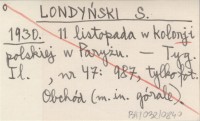 LONDYŃSKI S.
1930. 11 listopada w kolonji
polskiej w Paryżu. — Tyg.
Il., nr 47: 987, tylko fot.
Obchód (m.in. górale).